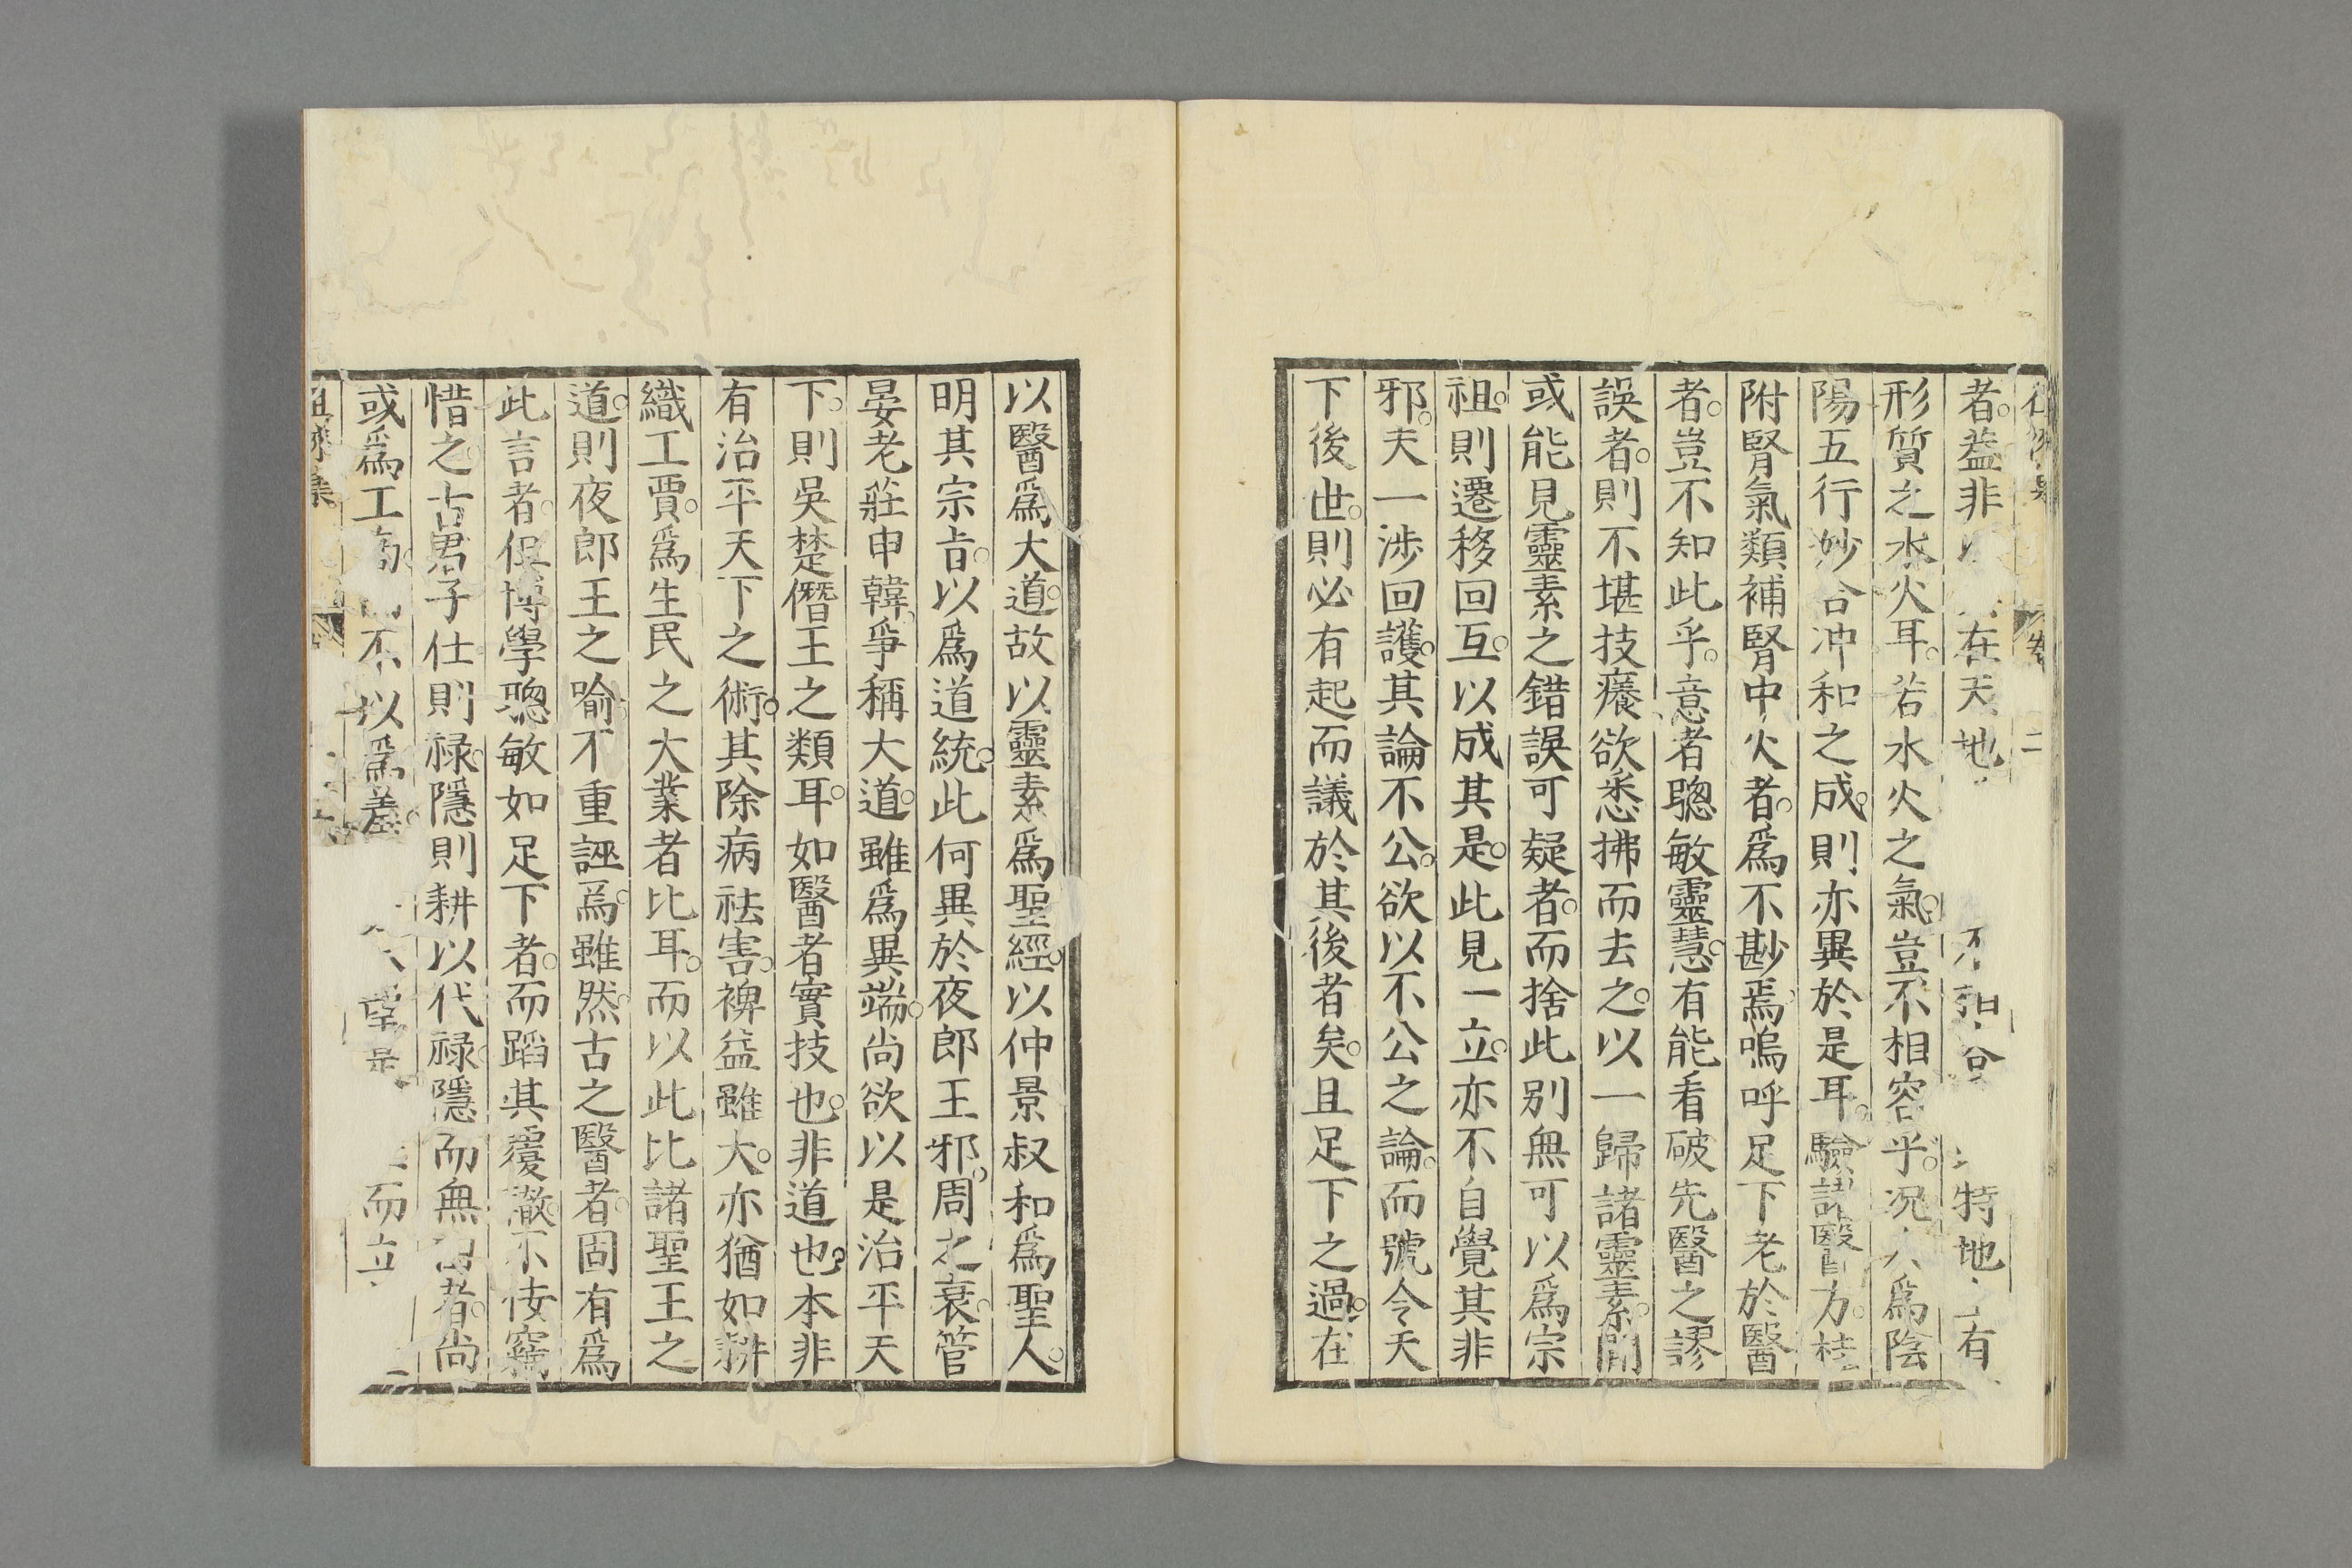 二
者。益非在天地不相合特地有
形質之水火耳。若水火之氣。豈不相容乎。況為陰
陽五行妙合冲和之成。則亦異於是耳。驗諸醫方。桂
附腎氣類補腎中火者。爲不尠焉嗚呼足下老於醫
者。豈不知此乎。意者聰敏靈慧。有能看破先醫之謬
誤者。則不堪技癢欲悉拂而去之。以一歸諸靈素。間
或能見靈素之錯誤可疑者。而捨此别無可以爲宗
祖。則遷移回互。以成其是。此見一立。亦不自覺其非
邪。夫一涉回護。其論不公。欲以不公之論。而號令天
下後世。則必有起而議於其後者矣。且足下之過。在
以醫爲大道。故以靈素爲聖經。以仲景叔和爲聖人。
明其宗旨。以爲道統。此何異於夜郎王邪。周之衰。管
晏老莊申韓。爭稱大道。雖爲異端。尚欲以是治平天
下。則吳楚僭王之類耳。如醫者實技也。非道也。本非
有治平天下之術。其除病祛害。裨益雖大。亦猶如耕
織工賈。爲生民之大業者比耳。而以此比諸聖王之
道。則夜郎王之喻不重誣焉。雖然。古之醫者。固有爲
此言者。但博學聰敏如足下者。而蹈其覆轍。不佞竊
惜之。古君子仕則祿。隱則耕以代祿。隱而無者。尚
或爲工不以爲羞。望是而立